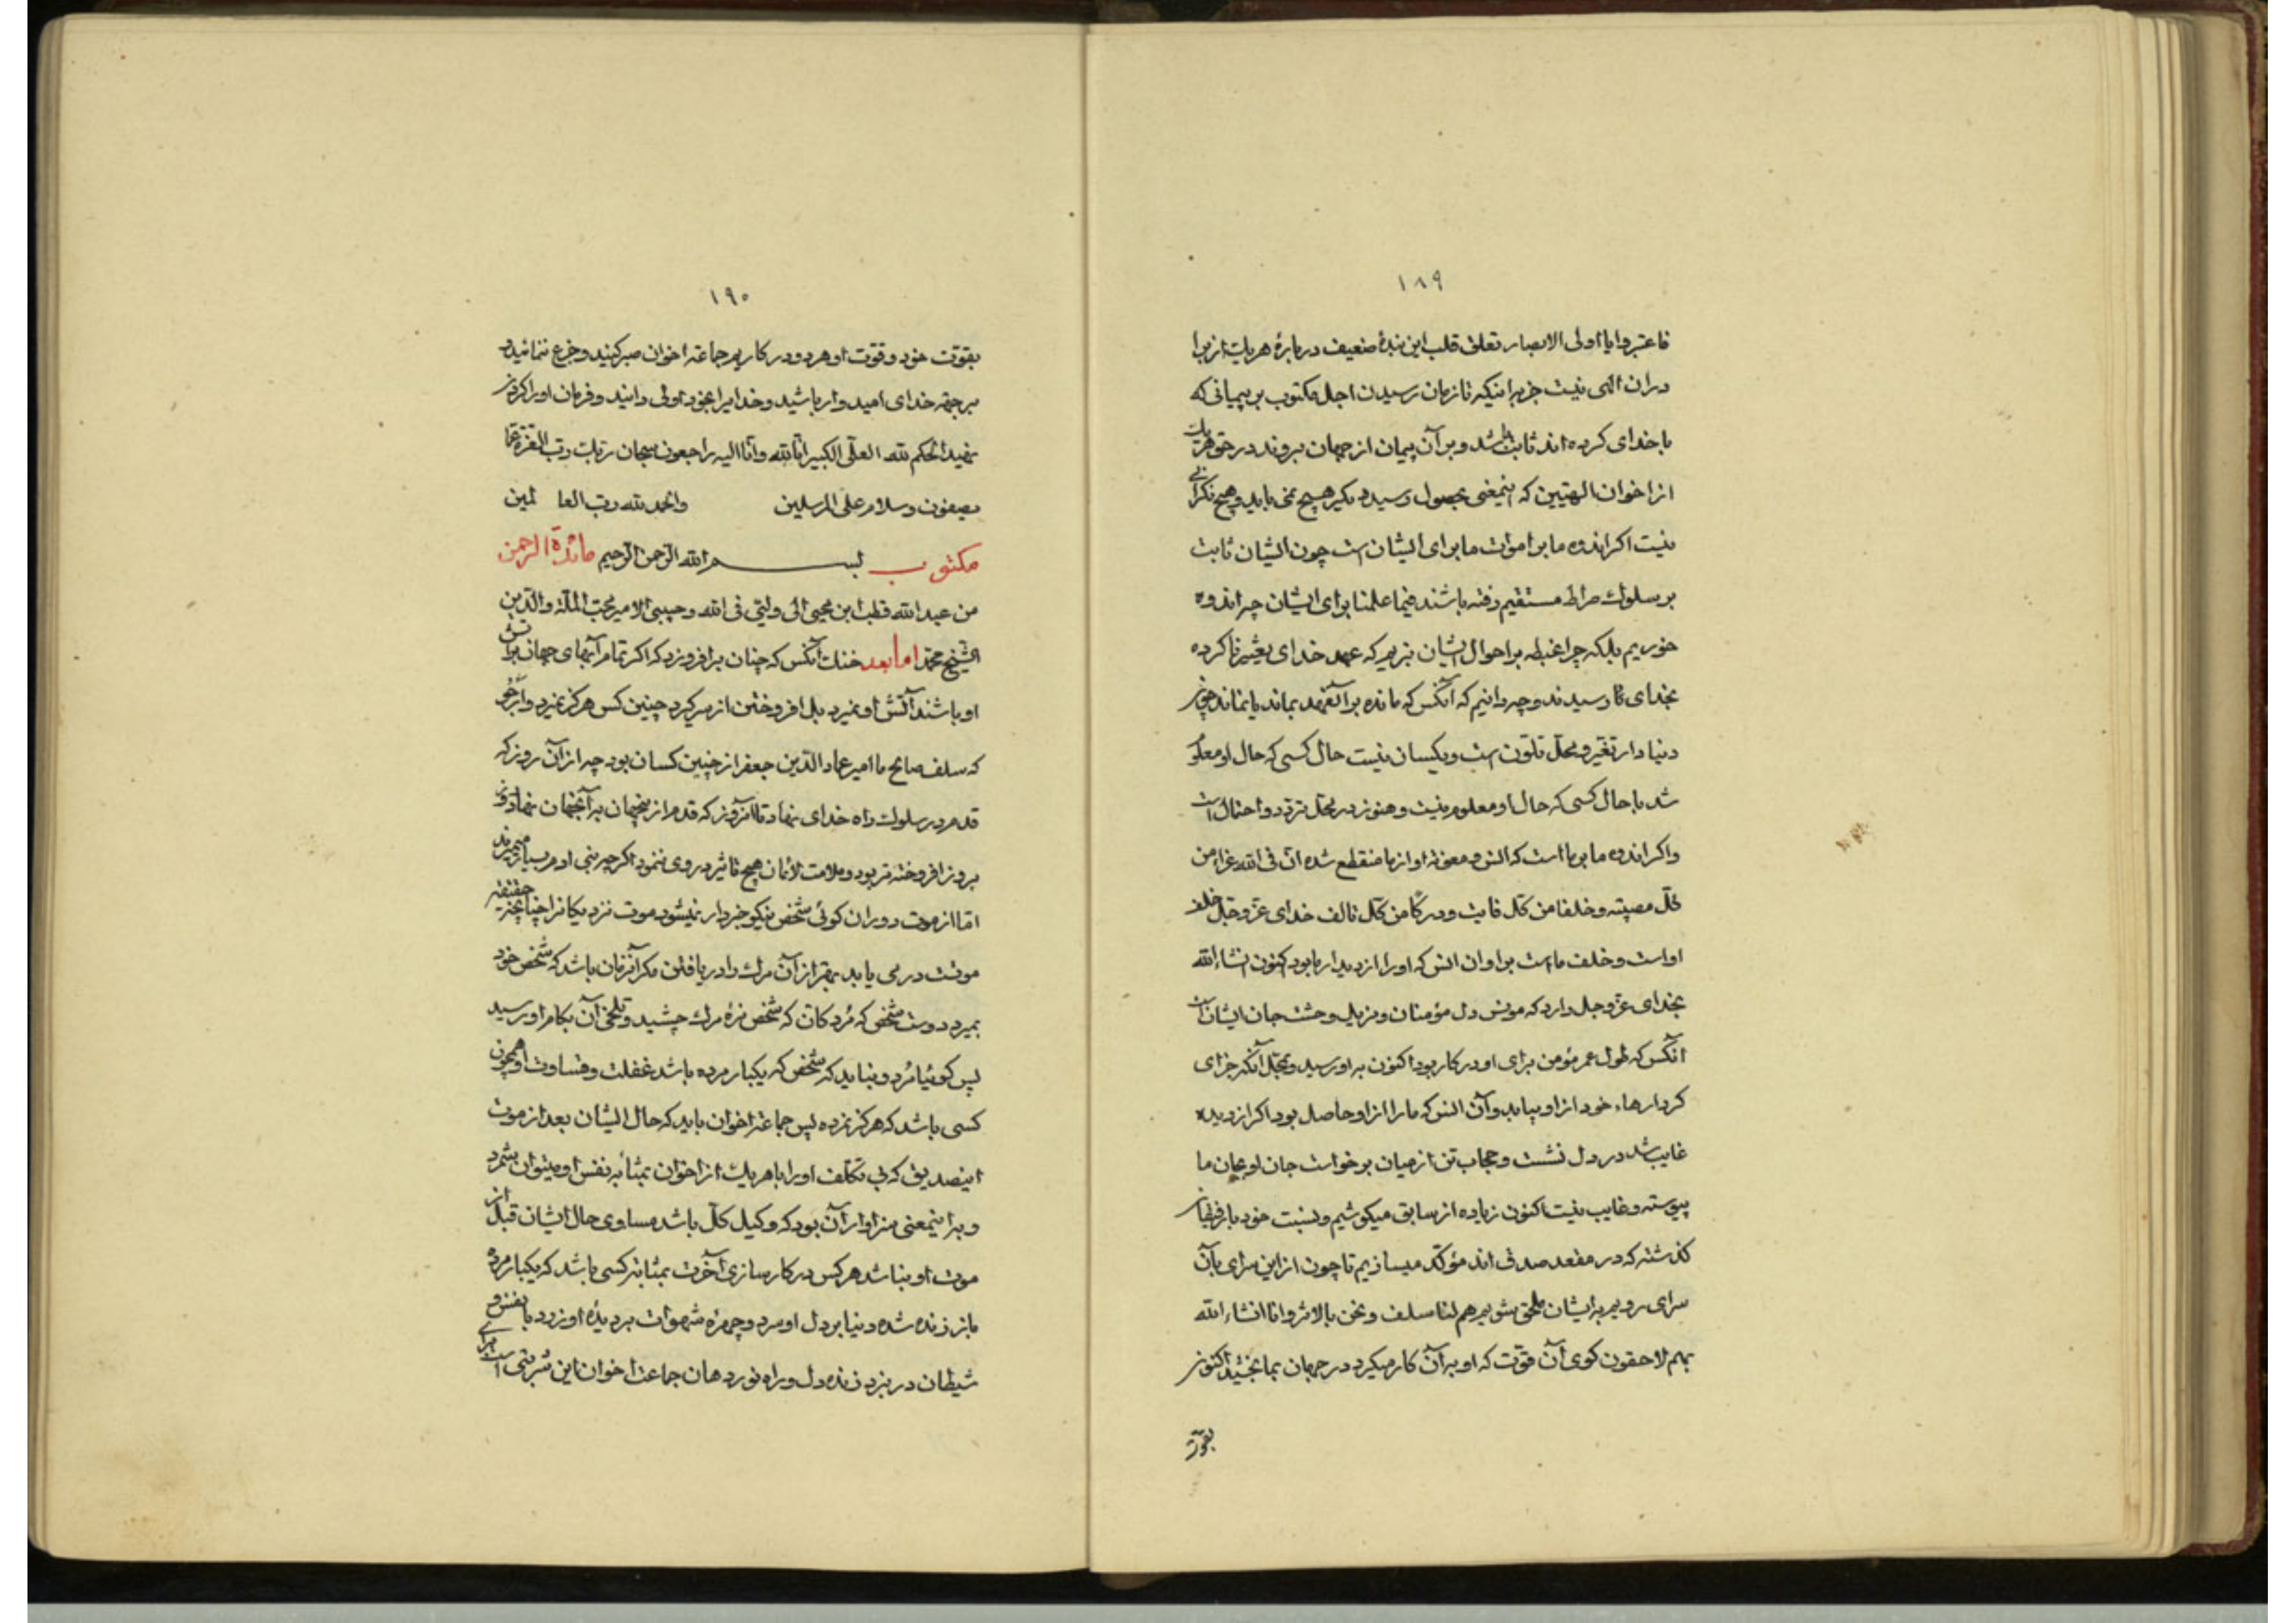 ١٨٩
فاعتبروا یا اولی الابصار تعلق قلب این بندهٔ ضعیف دربارهٔ هریک از برا
دران الهی نیست جز برا اینکه تا زمان رسیدن اجل مکتوب بر پیمانی که
با خدای کرده اند ثابت باشند و بر آن پیمان از جهان بروند در حق هریک
از اخوان الهیین که اینمعنی بحصول رسید دیگر هیچ نمی باید و هیچ نگرانی
نیست اگر اندوه ما بر اموات ما برای ایشان است چون ایشان ثابت
بر سلوک صراط مستقیم رفته باشند فیما علمنا برای ایشان چرا اندوه
خوریم بلکه چرا غبطه بر احوال ایشان نبریم که عهد خدای بغیر نا کرده
بخدای تا رسیدند و چه دانیم که آنکس که مانده بر آنعهد بماند یا نماند چون
دنیا دار تغیر و محل تلون است و یکسان نیست حال کسی که حال او معلوم
شد با حال کسی که حال او معلوم نیست و هنوز در محل تردد و احتمال است
و اگر اندوه ما بر ما است که انس و معونة او از ما منقطع شده ان فی الله عزاء من
کل مصیبته و خلفا من کل فایت و درکا من کل تالف خدای عز و جل خلف
او است و خلف ما است بر او ان انس که او را از دیدار ما بود اکنون انشاء الله
بخدای عز و جل دارد که مونس دل مؤمنان و مزیل وحشت جان ایشان است
انکس که طول عمر مؤمن برای او در کار بود اکنون به او رسید و بمحل آنکه جزای
کردارهاء خود از او بیابد و آن انس که ما را از او حاصل بود اگر از دیده
غایب شد در دل نشست و حجاب تن از میان برخواست جان او بجان ما
پیوسته و غایب نیست اکنون زیاده از سابق میکوشیم و نسبت خود با رفیقان
گذشته که در مقعد صدق اند مؤکد میسازیم تا چون از این سرای بآن
سرای رویم به ایشان ملحق شویم هم لنا سلف و نحن بالاثر و انا انشاء الله
بهم لاحقون گوی آن قوت که او به آن کار میکرد در جهان بما بخشید اکنون
بقوت
١٩٠
بقوت خود و قوت او هر دو در کاریم جماعة اخوان صبر کنید و جزع ننمائید و
برحمة خدای امیدوار باشید و خدا یرا بخود اولی دانید و فرمان او را گردن
نهید الحکم لله العلی الکبیر انا لله و انا الیه راجعون سبحان ربک رب العزة عما
یصفون و سلام علی المرسلین و الحمد لله رب العا لمین
مکتوب بسم الله الرحمن الرحیم مائدة الرحمن
من عبد الله قطب ابن محیی الی ولیی فی الله و حبیبی الامیر محب الملة و الدین
الشیخ محمد اما بعد خنک آنکس که چنان برافروزد که اگر تمام آبهای جهان بر آتش
او باشند آتش او نمیرد بل افروختن از سر گیرد چنین کس هرگز نمیرد و
که سلف صالح ما امیر عماد الدین جعفر از چنین کسان بود چه از آن روز که
قدم در سلوک راه خدای نهاد تا آنروز که قدم از ینجهان به آنجهان نهاد روز
بروز افروخته تر بود و ملامت لائمان هیچ تاثیر در وی ننمود اگر چه بنی ادم بسیار میمیرند
اما از موت دوران گوئی شخص نیکو خبردار نمیشود موت نزدیکانرا چنانچه حقیقة
موتست در می یابد بهتر از آن مرگ را دریافتن مگر آنزمان باشد که شخص خود
بمیرد دوست شخص که مُرد کان که شخص مزهٔ مرگ چشید و تلخی آن بکام او رسید
پس گوئیا مُرد و نباید که شخص که یکبار مرده باشد غفلت و قساوت او همچون
کسی باشد که هرگز نمرده پس جماعة اخوان باید که حال ایشان بعد از موت
اینصدیق که بی تکلف او را با هریک از اخوان بمثابه نفس او میتوان شمرد
و برا ینمعنی سزاوار آن بود که وکیل کل باشد مساوی حال ایشان قبل از
موت او نباشد هر کس در کارسازی آخرت بمثابه کسی باشد که یکبار مرده
باز زنده شده دنیا بر دل او سرد و چهرهٔ شهوات بر دیدهٔ او زرد با نفس و
شیطان در نبرد زنده دل و راه نورد هان جماعة اخوان این شربتی است برای